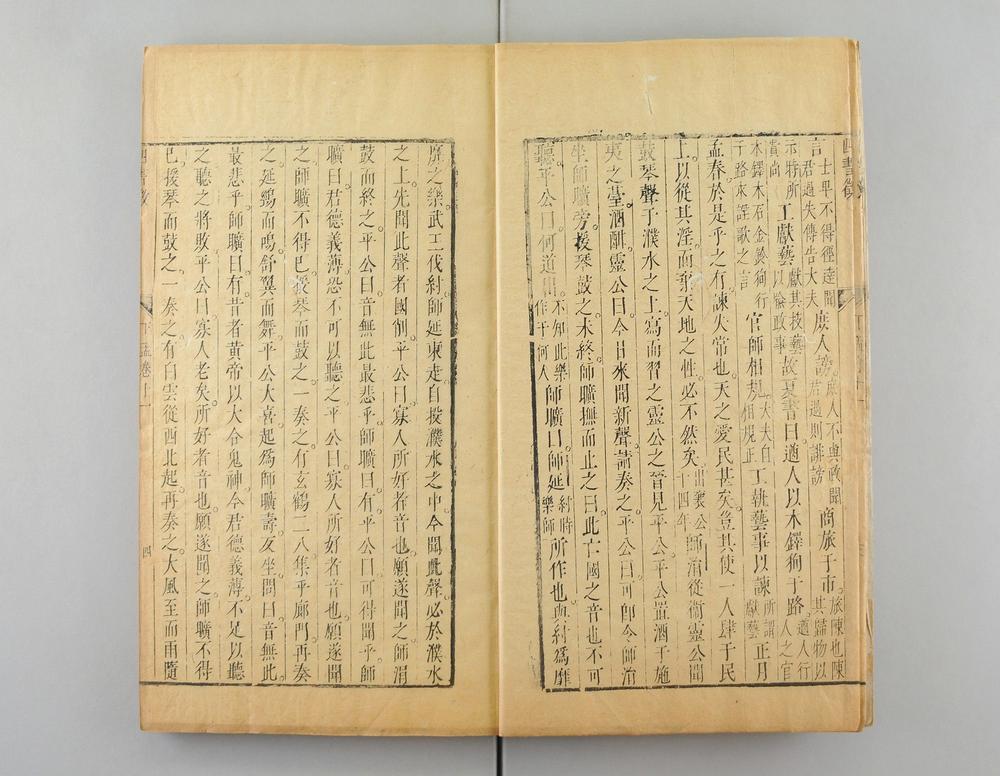 言士卑不得徑達聞君過失傳告大夫庶人謗庶人不與政聞君過則誹謗商旅于市旅陳也陳其貨物以
示時所貴尚工獻藝獻其技藝以喻政事故夏書曰遒人以木鐸徇于路遒人行人之官
木鐸木石金鈴徇行于路來謡歌之言官師相規大夫自相規正工執藝事以諫所謂獻藝正月
孟春於是乎之有諫失常也天之愛民甚矣豈其使一人肆于民
上以從其淫而棄天地之性必不然矣出襄公十四年師涓從衛靈公聞
鼓琴聲于濮水之上寫而習之靈公之晉見平公平公置酒于施
夷之臺酒酣靈公曰今日來聞新聲請奏之平公曰可即令師涓
坐師曠旁援琴鼓之未終師曠撫而止之曰此亡國之音也不可
聽平公曰何道出不知此樂作于何人師曠曰師延紂時樂師所作也與紂爲靡
靡之樂武王伐紂師延東走自投濮水之中今聞此聲必於濮水
之上先聞此聲者國削平公曰寡人所好者音也願遂聞之師涓
鼓而終之平公曰音無此最悲乎師曠曰有平公曰可得聞乎師
曠曰君德義薄恐不可以聽之平公曰寡人所好者音也願遂聞
之師曠不得已援琴而鼓之一奏之有玄鶴二八集乎廊門再奏
之延頸而鳴舒翼而舞平公大喜起爲師曠壽反坐問曰音無此
最悲乎師曠曰有昔者黃帝以大合鬼神今君德義薄不足以聽
之聽之將敗平公曰寡人老矣所好者音也願遂聞之師曠不得
已援琴而鼓之一奏之有白雲從西北起再奏之大風至而雨隨
四書
下孟卷上
四